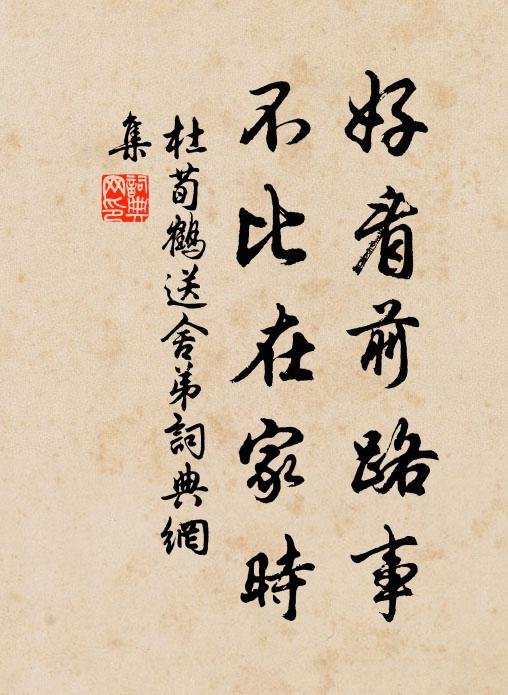 好看前路事
不比在家時
杜荀鶴送舍弟詞典網
集
詞典網印